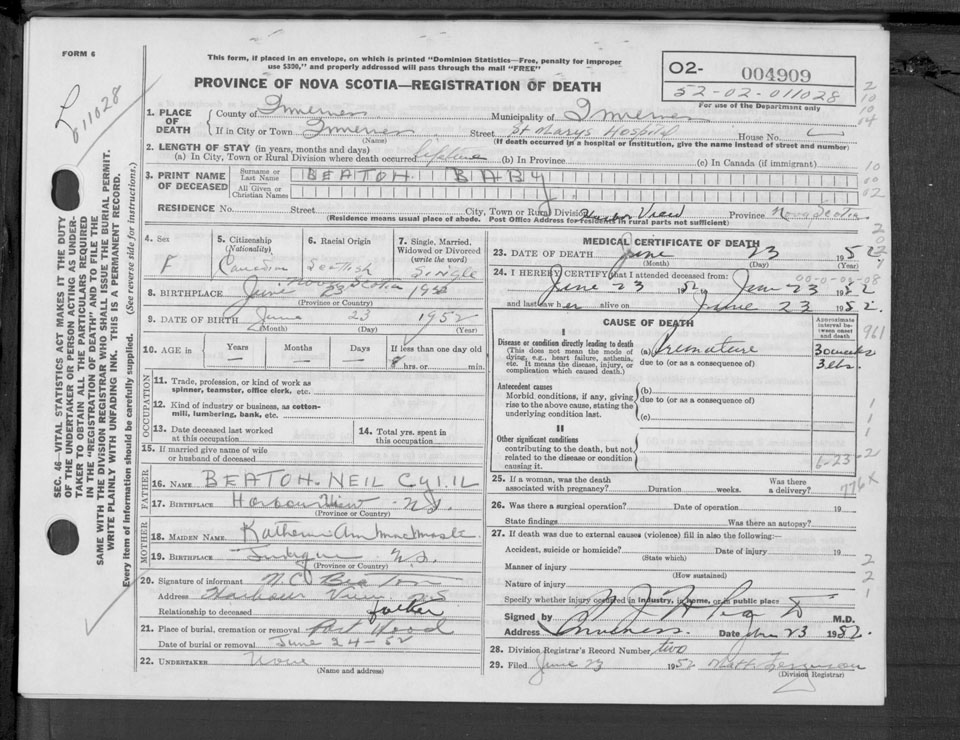 FORM 6
This form, if placed in an envelope, on which is printed "Dominion Statistics—Free, penalty for improper
use $300," and properly addressed will pass through the mail "FREE"
PROVINCE OF NOVA SCOTIA—REGISTRATION OF DEATH
O2- 004909
52-02-011028
For use of the Department only
L 011028
1. PLACE OF DEATH
County of Inverness Municipality of Inverness
If in City or Town Inverness Street St Marys Hospital House No.
(Name) (If death occurred in a hospital or institution, give the name instead of street and number)
2. LENGTH OF STAY (in years, months and days)
(a) In City, Town or Rural Division where death occurred lifetime (b) In Province (c) In Canada (if immigrant)
3. PRINT NAME OF DECEASED
Surname or Last Name BEATON BABY
All Given or Christian Names
RESIDENCE No. Street City, Town or Rural Division Harbor View Province Nova Scotia
(Residence means usual place of abode. Post Office Address for residents in rural parts not sufficient)
4. Sex F
5. Citizenship (Nationality) Canadian
6. Racial Origin Scottish
7. Single, Married, Widowed or Divorced (write the word) Single
8. BIRTHPLACE Nova Scotia
June 23 1952
(Province or Country)
9. DATE OF BIRTH June 23 1952
(Month) (Day) (Year)
10. AGE in Years Months Days If less than one day old
hrs. or min.
OCCUPATION
11. Trade, profession, or kind of work as spinner, teamster, office clerk, etc.
12. Kind of industry or business, as cotton-mill, lumbering, bank, etc.
13. Date deceased last worked at this occupation
14. Total yrs. spent in this occupation
15. If married give name of wife or husband of deceased
FATHER
16. NAME BEATON NEIL
17. BIRTHPLACE Harbourview N.S.
(Province or Country)
MOTHER
18. MAIDEN NAME Katherine Ann
19. BIRTHPLACE Judique N.S.
(Province or Country)
20. Signature of informant N.C. Beaton
Address Harbour View N.S.
Relationship to deceased father
21. Place of burial, cremation or removal Port Hood
Date of burial or removal June 24-52
22. UNDERTAKER None
(Name and address)
MEDICAL CERTIFICATE OF DEATH
23. DATE OF DEATH June 23 1952
(Month) (Day) (Year)
24. I HEREBY CERTIFY that I attended deceased from:
June 23 1952 to June 23 1952
and last saw her alive on June 23 1952
CAUSE OF DEATH
Approximate interval between onset and death
I
Disease or condition directly leading to death
(This does not mean the mode of dying, e.g., heart failure, asthenia, etc. It means the disease, injury, or complication which caused death.)
(a) Premature 30 weeks
due to (or as a consequence of)
Antecedent causes
Morbid conditions, if any, giving rise to the above cause, stating the underlying condition last.
(b)
due to (or as a consequence of)
(c)
II
Other significant conditions
contributing to the death, but not related to the disease or condition causing it.
6-23
25. If a woman, was the death associated with pregnancy? Duration weeks. Was there a delivery?
776x
26. Was there a surgical operation? Date of operation 19
State findings Was there an autopsy?
27. If death was due to external causes (violence) fill in also the following:—
Accident, suicide or homicide? Date of injury 19
(State which)
Manner of injury
(How sustained)
Nature of injury
Specify whether injury occurred in industry, in home, or in public place
Signed by M.D.
Address Inverness. Date June 23 1952.
28. Division Registrar's Record Number two
29. Filed June 23 1952 Ferguson
(Division Registrar)
961
SEC. 46—VITAL STATISTICS ACT MAKES IT THE DUTY
OF THE UNDERTAKER OR PERSON ACTING AS UNDER-
TAKER TO OBTAIN ALL THE PARTICULARS REQUIRED
IN THE "REGISTRATION OF DEATH" AND TO FILE THE
SAME WITH THE DIVISION REGISTRAR WHO SHALL ISSUE THE BURIAL PERMIT.
WRITE PLAINLY WITH UNFADING INK. THIS IS A PERMANENT RECORD.
Every item of information should be carefully supplied. (See reverse side for instructions.)